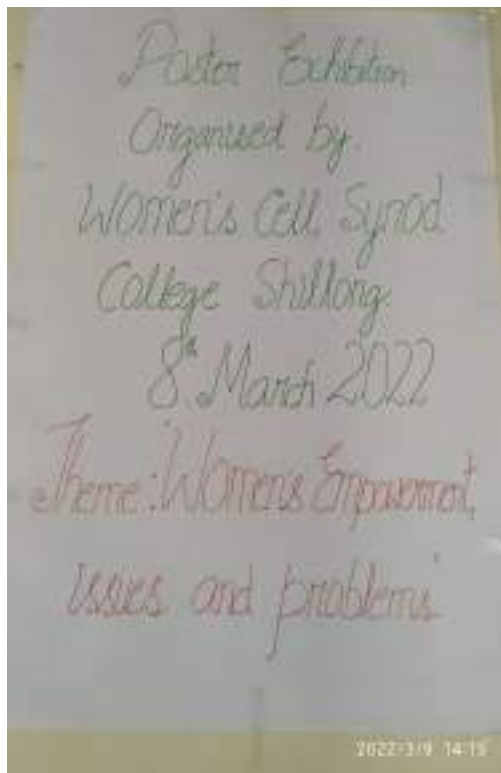 Poster Exhibition
Organised by
Women's Cell, Synod
College Shillong.
8th March 2022
Theme: "Women's Empowerment,
issues and problems"
2022/3/9 14:19